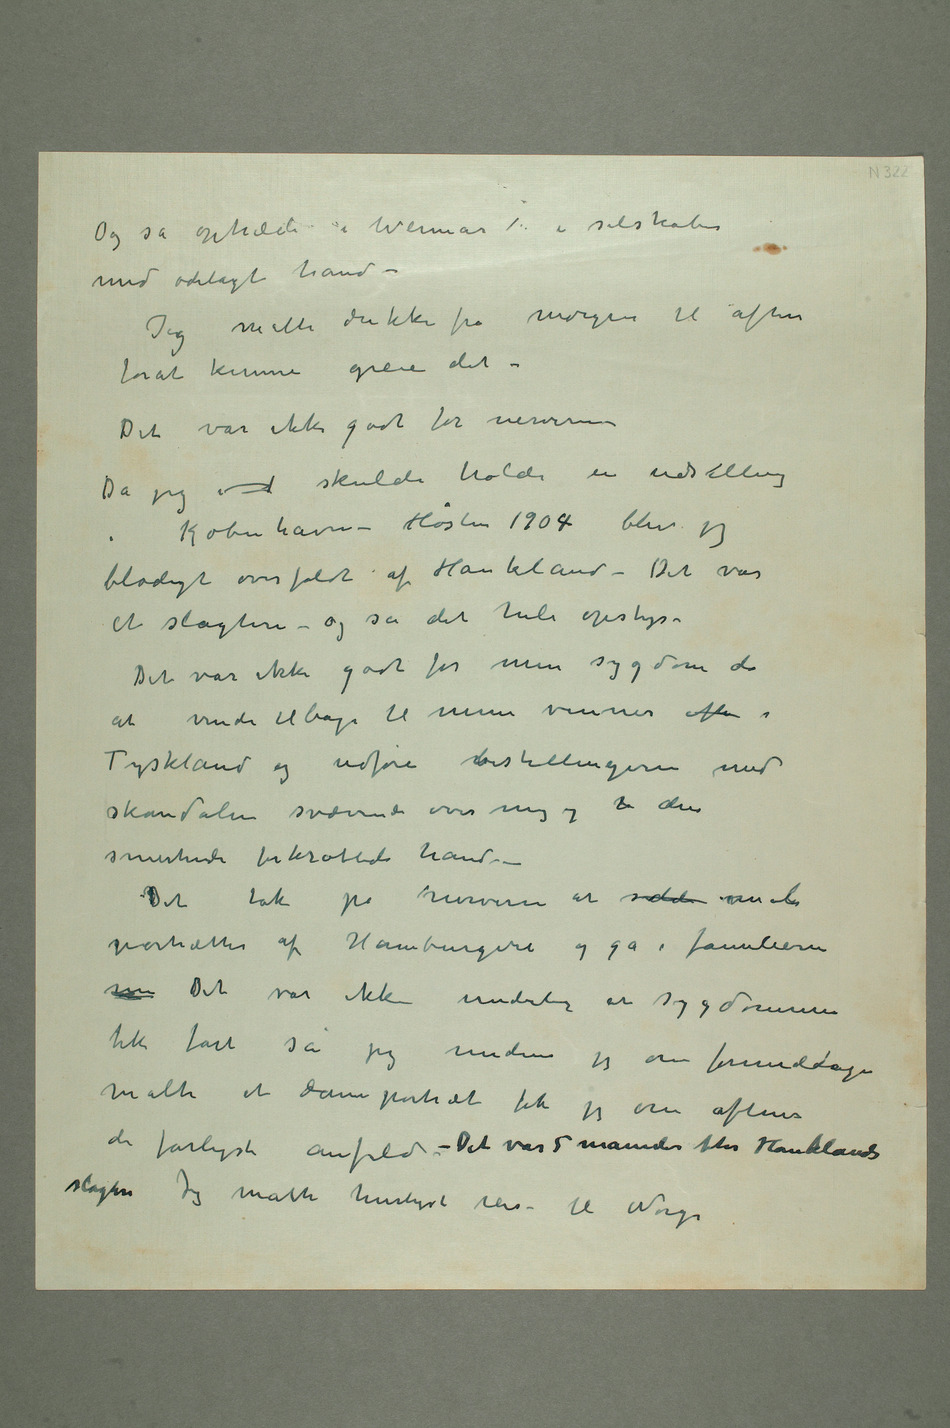 N 322
Og så optræde i Weimar i selskaber
med ødelagt hånd –
Jeg måtte drikke fra morgen til aften
forat kunne greie det –
Det var ikke godt for nerverne
Da jeg skulde holde en udstilling
i København – Høsten 1904 blev jeg
blodigt overfaldt af Haukland – Det var
et slagteri – og så det hele opstyr –
Det var ikke godt for min sygdom da
at vende tilbage til mine venner i
Tyskland og udføre bestillingerne med
skandalen svævende over mig og den
smertende forkrøblede hånd –
Det tok på nerverne at male
portrætter af Hamburgere og gå i familierne
Det var ikke underlig at sygdommen
tok fart så jeg mens jeg om formiddagen
malte et dameportræt fik jeg om aftenen
de farligste anfald – Det var 5 måneder efter Hauklands
slagteri Jeg måtte hurtigst reise til Norge